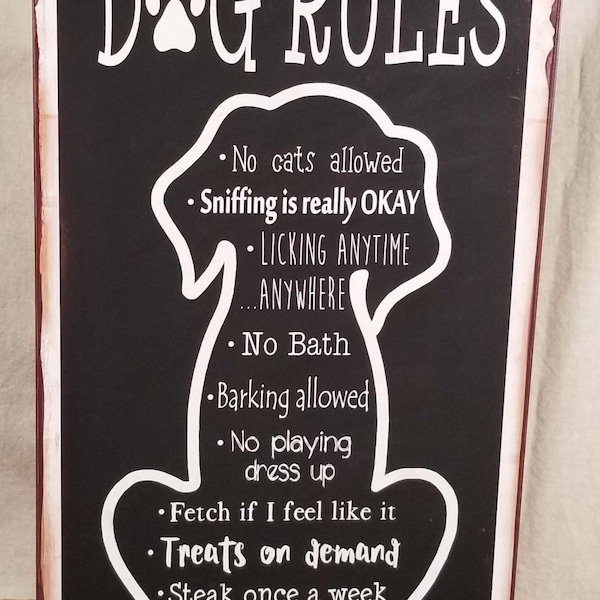 DOG RULES
• No cats allowed
• Sniffing is really OKAY
• LICKING ANYTIME
...ANYWHERE
• No Bath
• Barking allowed
• No playing
dress up
• Fetch if I feel like it
• Treats on demand
• Steak once a week